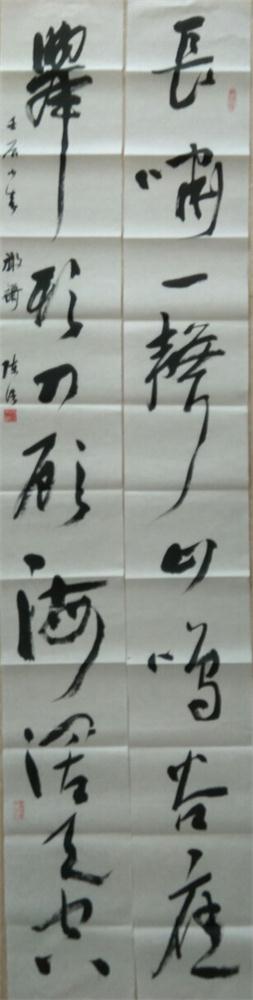 長嘯一聲山鳴谷應
舉頭四顧海闊天空
壬辰小春